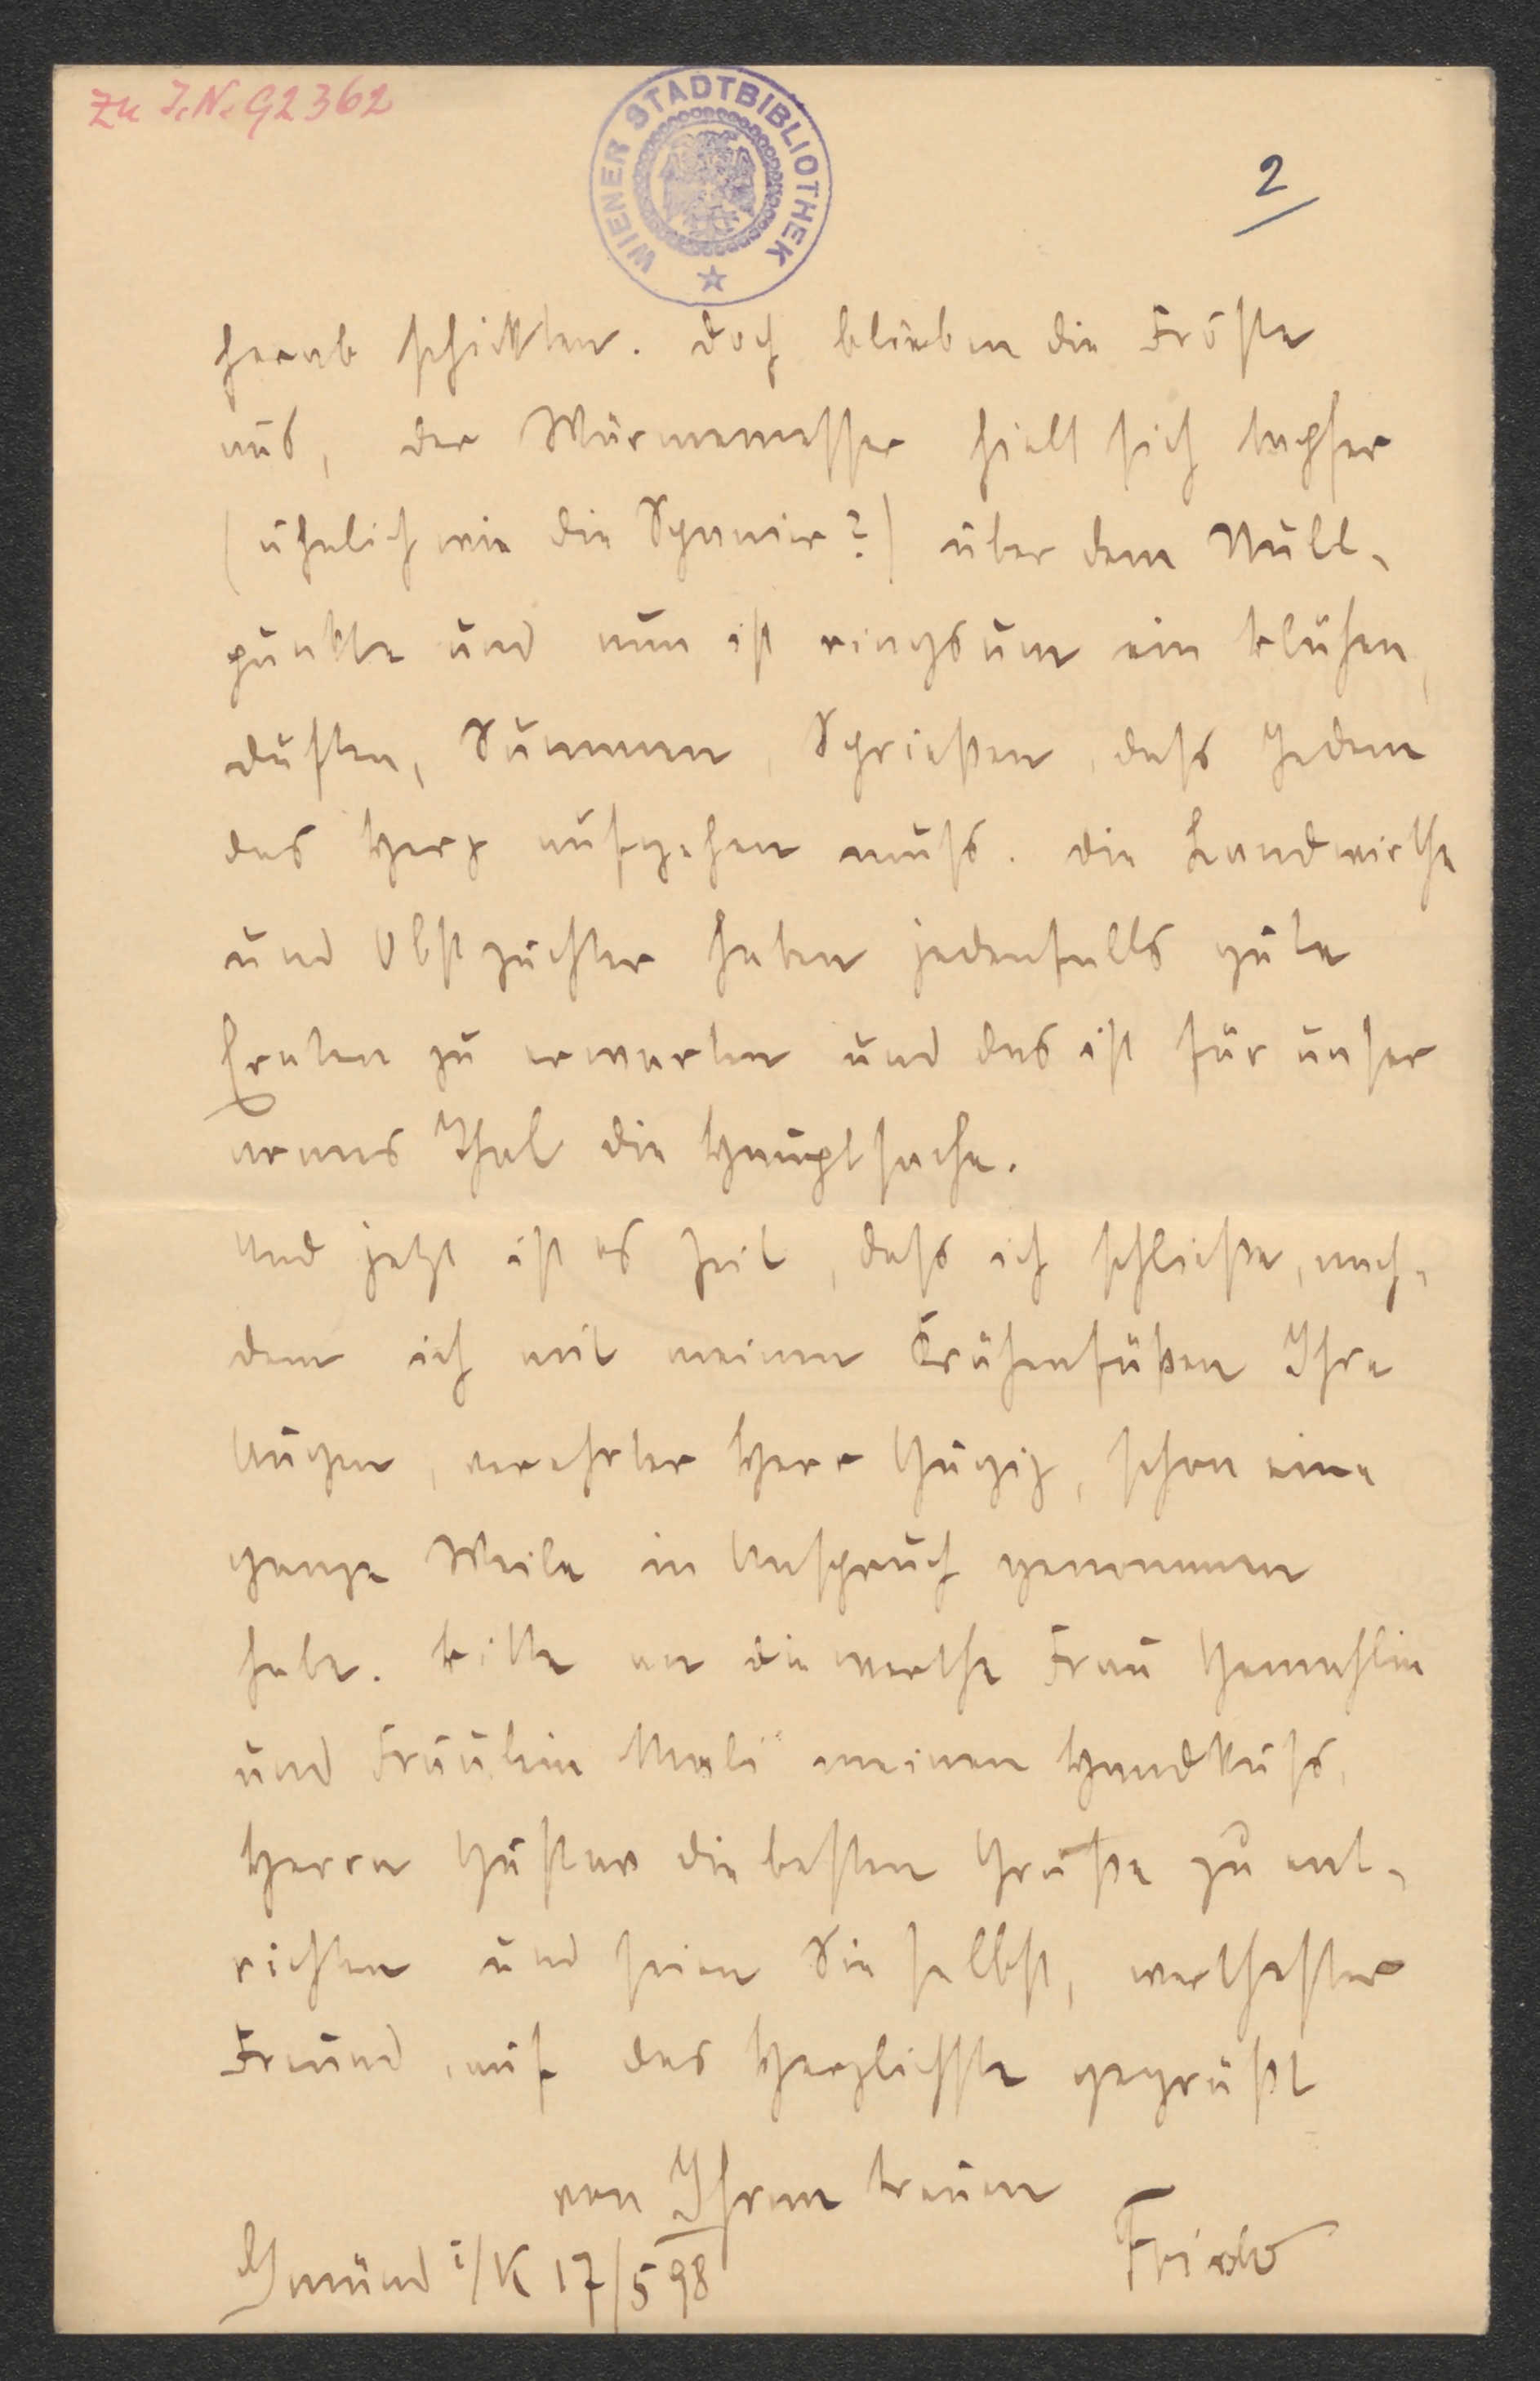 Zu I.N. 92362
WIENER STADTBIBLIOTHEK
2
herab schickten. Doch blieben die Fröste
aus, der Wärmemesser hielt sich tapfer
(ähnlich wie die Spanier?) über dem Null-
punkte und nun ist ringsum ein Blühen,
Duften, Summen, Sprießen, dass Jedem
das Herz aufgehen muss. Die Landwirthe
und Obstzüchter haben jedenfalls gute
Ernten zu erwarten und das ist für unser
armes Thal die Hauptsache.
Und jetzt ist es Zeit, dass ich schließe, nach-
dem ich mit meinen Krähenfüßen Ihre
Augen, verehrter Herr Gugitz, schon eine
ganze Weile in Anspruch genommen
habe. Bitte an die werthe Frau Gemahlin
und Fräulein Mali meinen Handkuss,
Herrn Gustav die besten Grüße zu ent-
richten und seien Sie selbst, werthester
Freund, auf das Herzlichste gegrüßt
von Ihrem treuen
Gmünd i/K 17/5 98